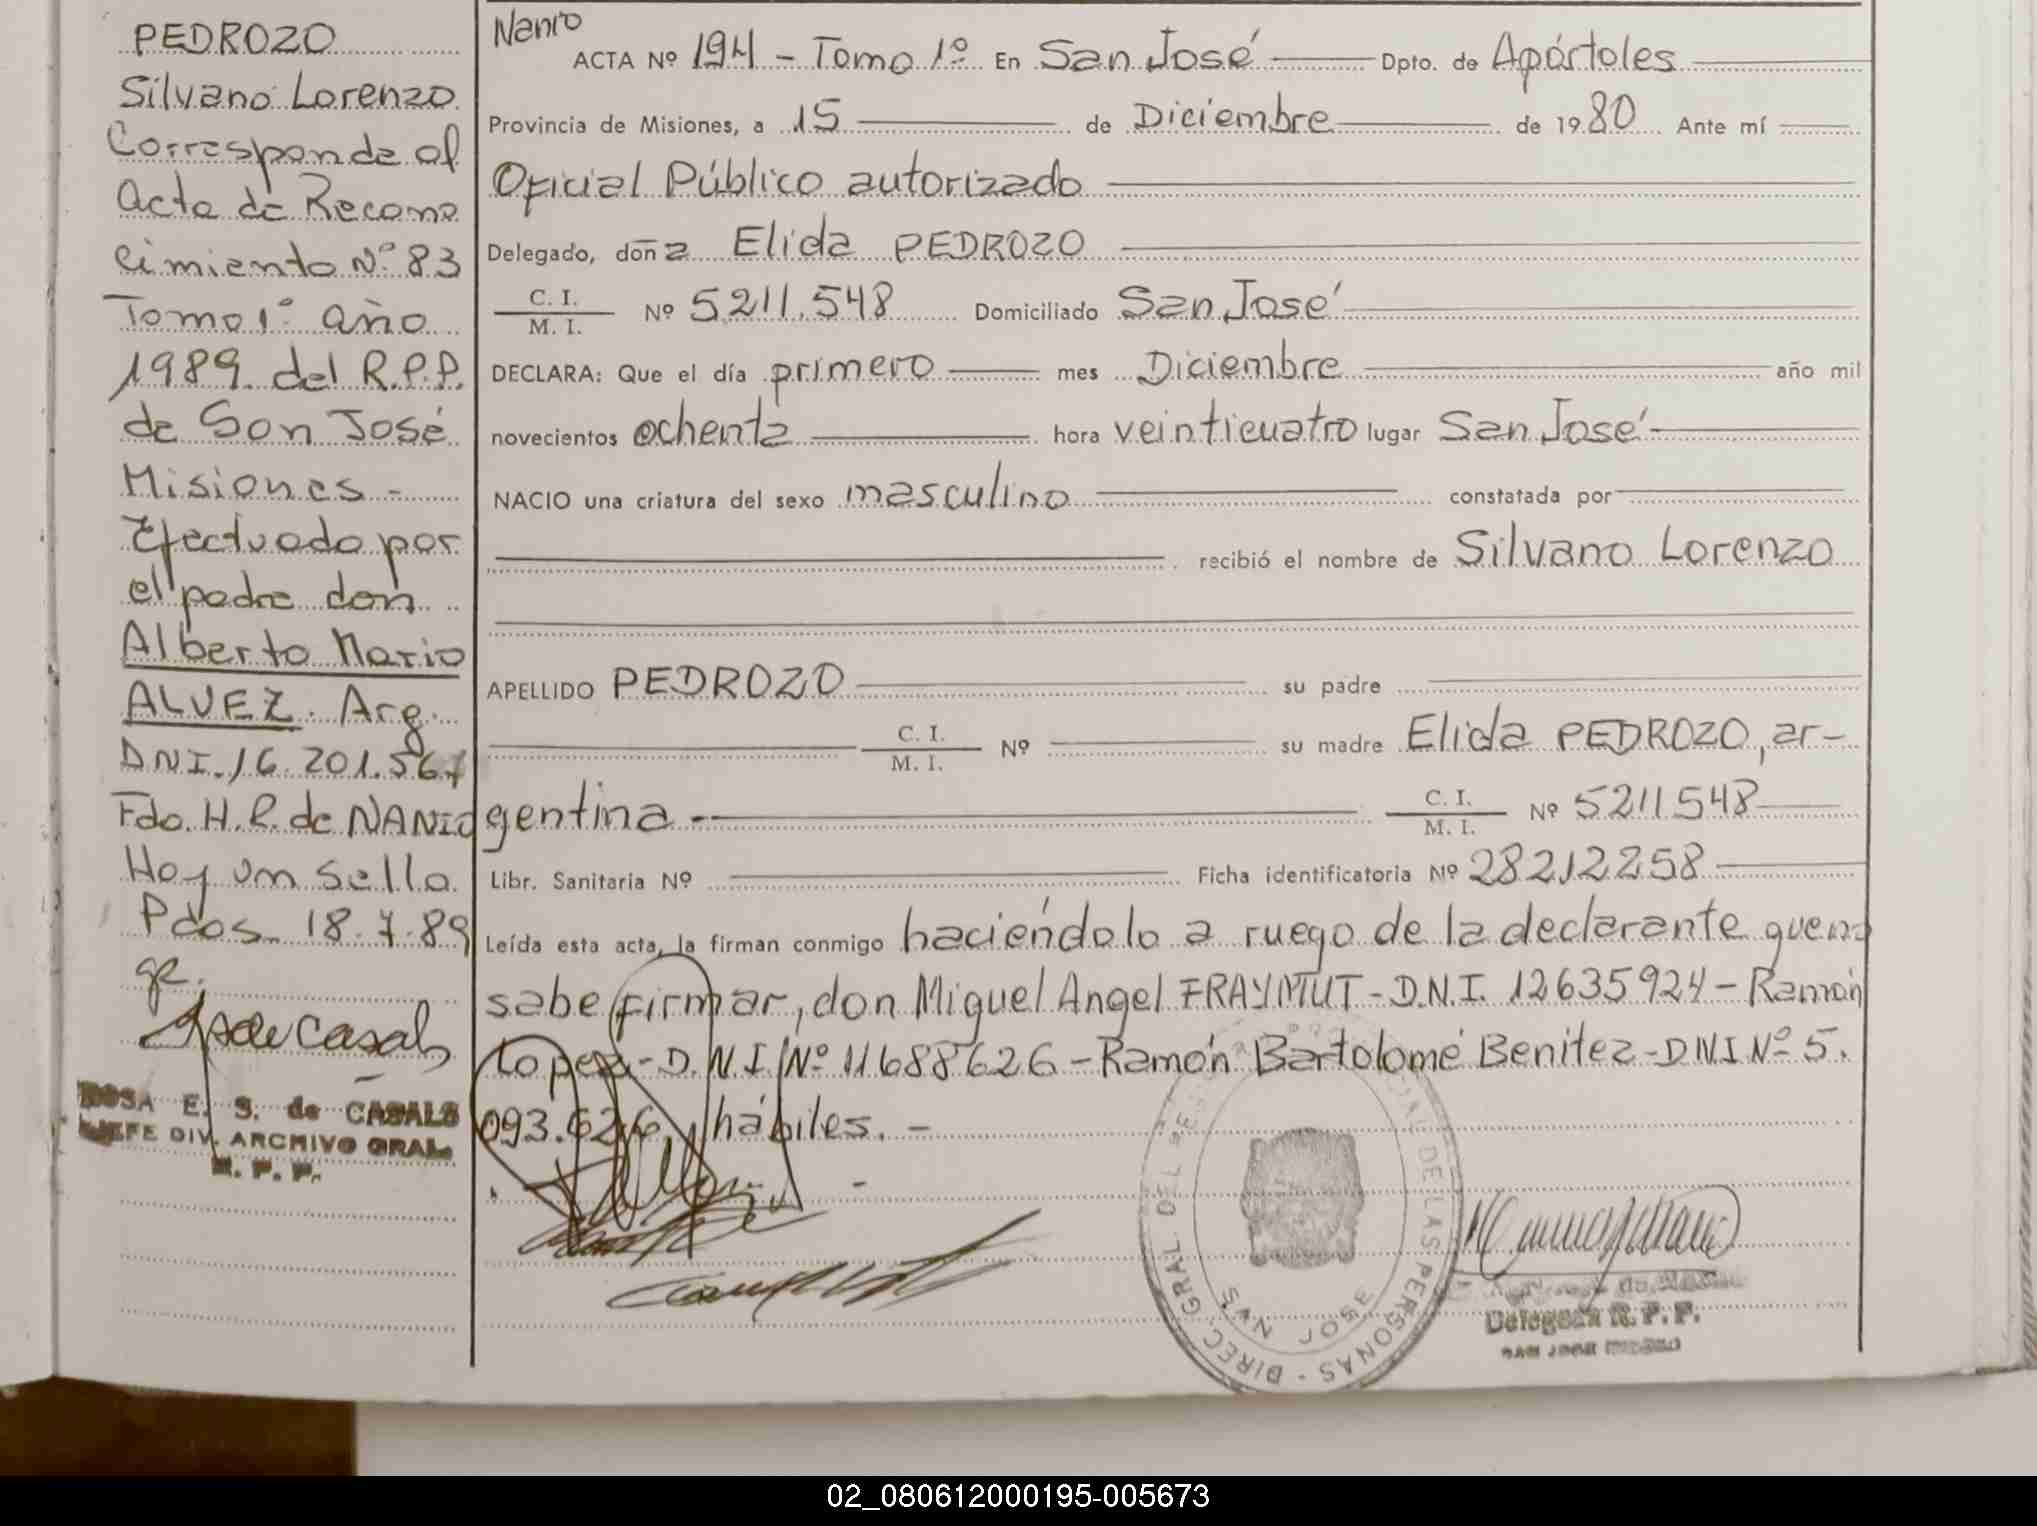 PEDROZO
Silvano Lorenzo
Corresponde al
Acta de Recono
cimiento Nº 83
Tomo 1º año
1989 del R.P.P.
de San José
Misiones -
Efectuado por
el padre don
Alberto Mario
ALVEZ. Arg.
DNI. 16.201.567
Fdo. H.R. de NANIO
Hay un sello
Pdas. 18.7.89
ROSA E. S. de CASALS
JEFE DIV. ARCHIVO GRAL.
R. P. P.
Nanio
ACTA Nº 194 - Tomo 1º En San José Dpto. de Apóstoles
Provincia de Misiones, a 15 de Diciembre de 1980 Ante mí
Oficial Público autorizado
Delegado, doña Elida PEDROZO
C. I.
M. I. Nº 5211.548 Domiciliado San José
DECLARA: Que el día primero mes Diciembre año mil
novecientos ochenta hora veinticuatro lugar San José
NACIO una criatura del sexo masculino constatada por
recibió el nombre de Silvano Lorenzo
APELLIDO PEDROZO su padre
C. I.
M. I. Nº su madre Elida PEDROZO, ar-
gentina -
C. I.
M. I. Nº 5211548
Libr. Sanitaria Nº Ficha identificatoria Nº 28212258
Leída esta acta, la firman conmigo haciéndolo a ruego de la declarante que no
sabe firmar, don Miguel Angel FRAYMUT - D.N.I. 12635924 - Ramón
Lopez - D.N.I Nº 11688626 - Ramón Bartolomé Benitez - DNI Nº 5.
093.626, hábiles. -
DIREC. GRAL. DEL DE LAS PERSONAS
SAN JOSE
Delegada R. P. P.
SAN JOSE
02_080612000195-005673